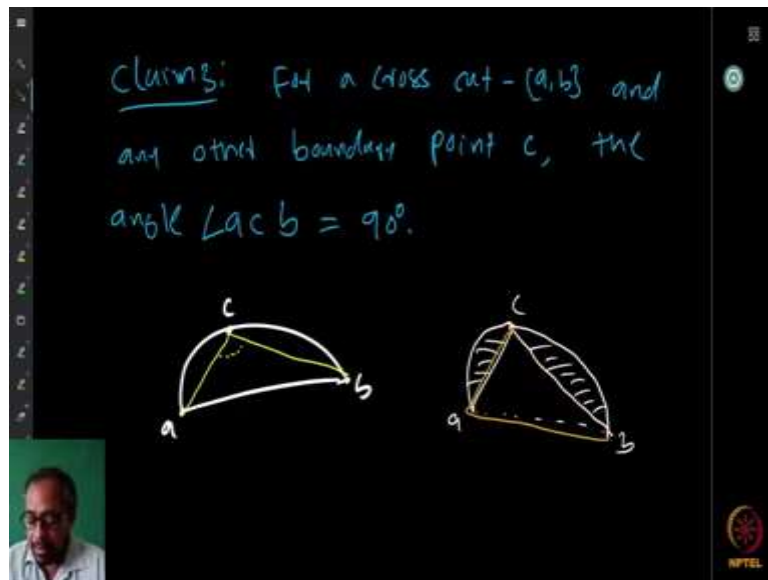 Claim 3: For a cross cut - {a,b} and
any other boundary point c, the
angle ∠acb = 90°.
c
a
b
c
a
b
NPTEL